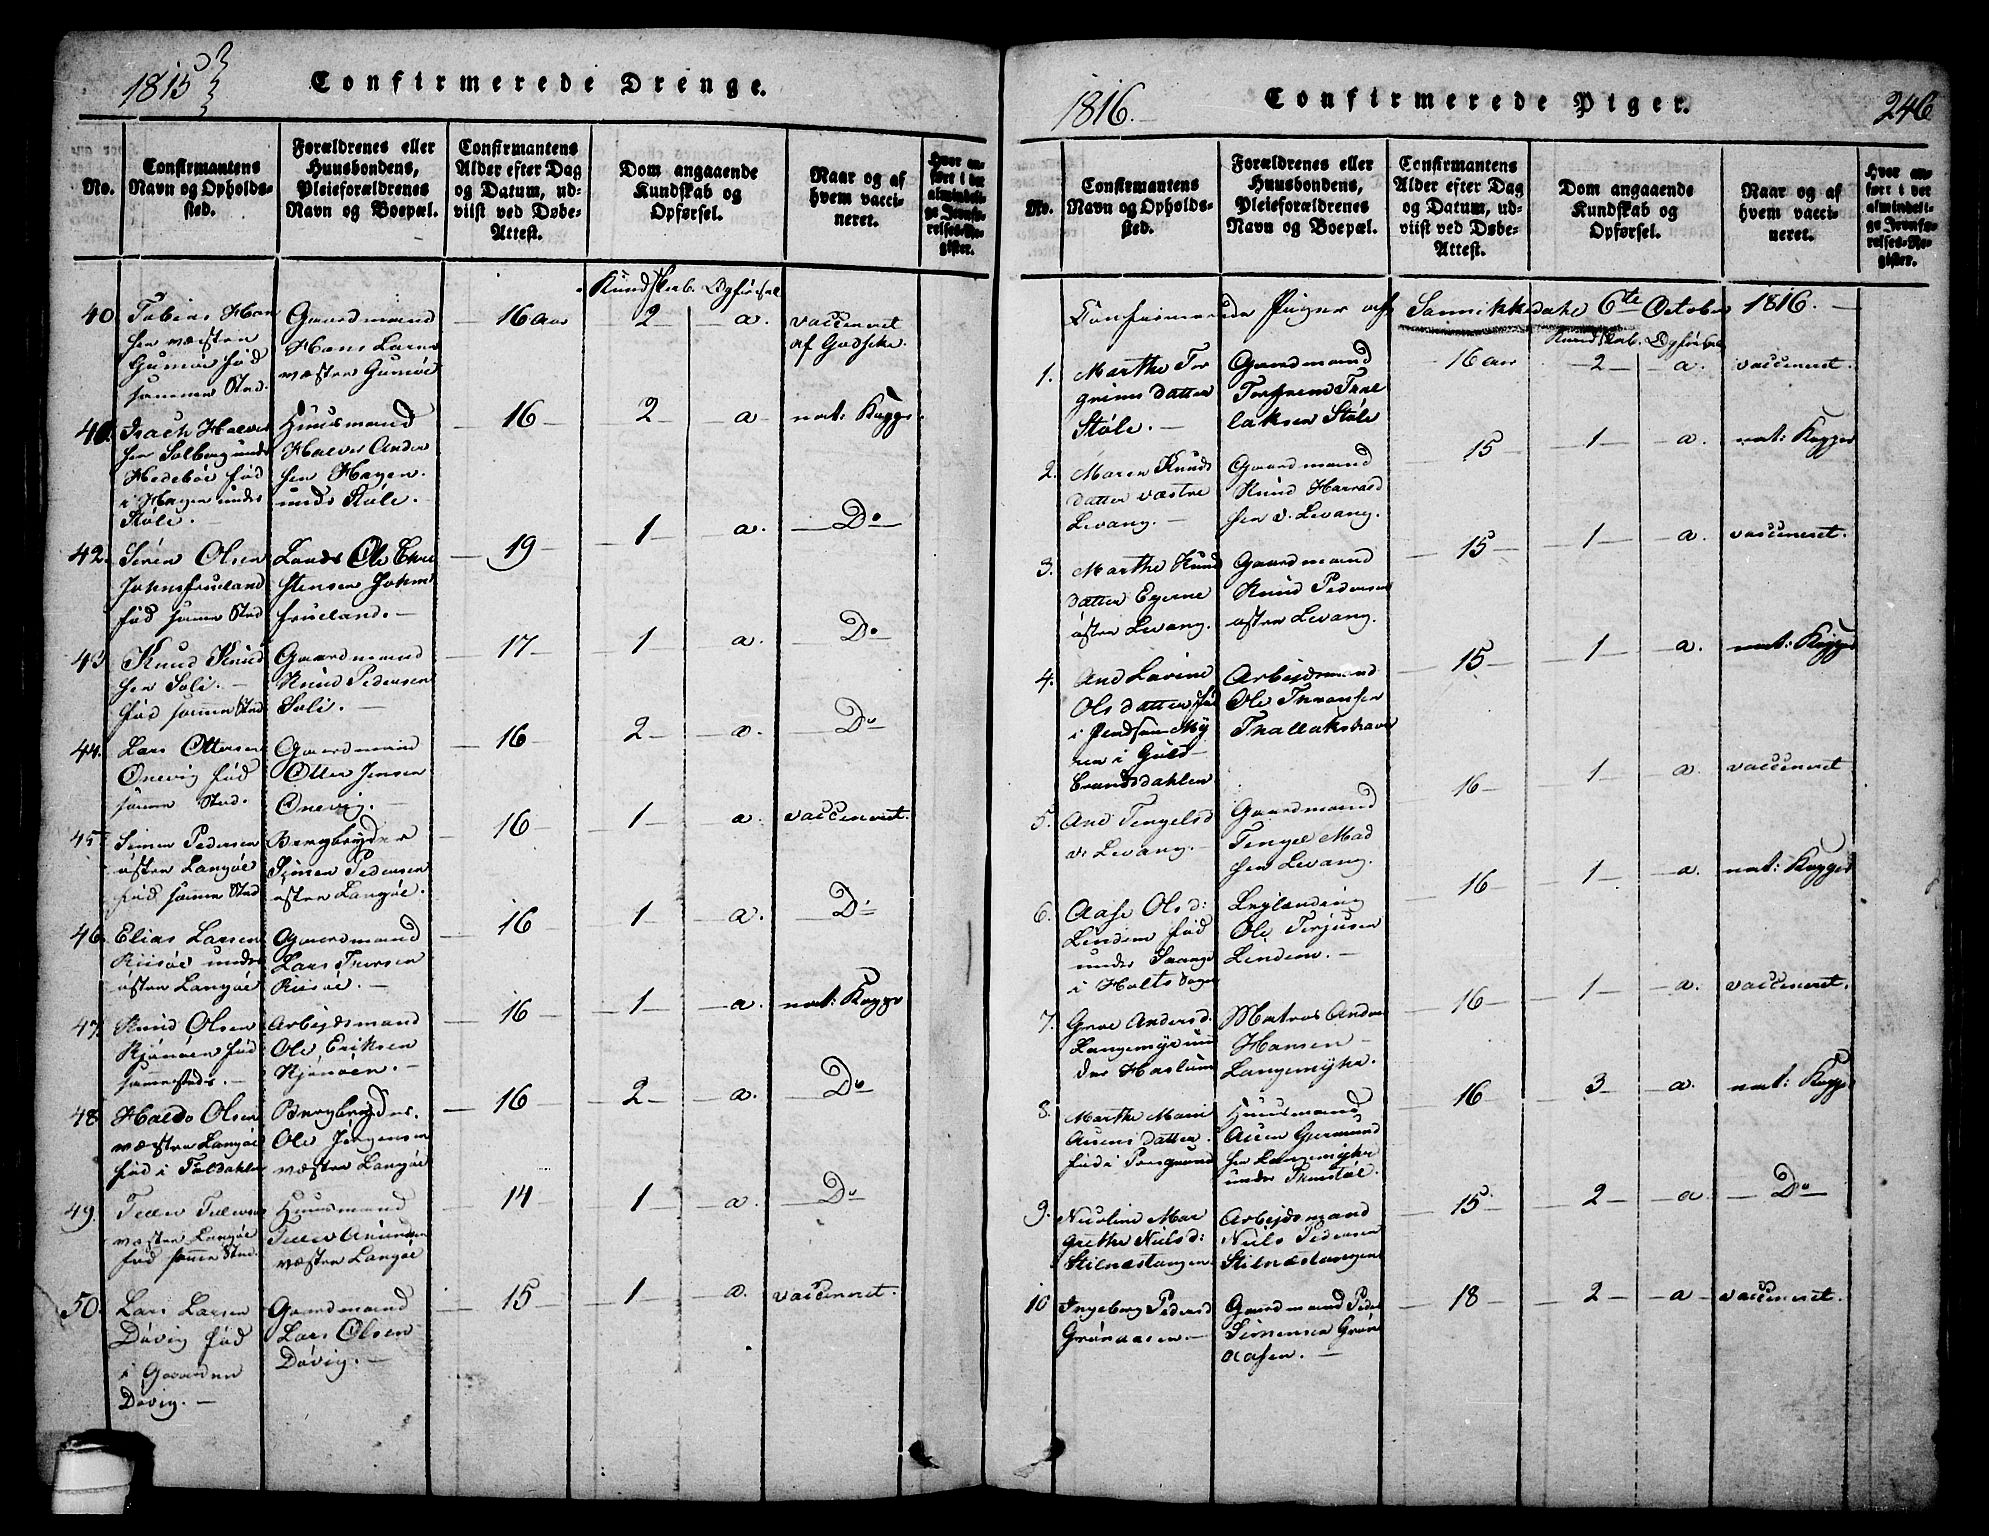 1815
Confirmerede Drenge.
No.
Confirmantens
Navn og Opholds-
sted.
Forældrenes eller
Huusbondens,
Pleieforældrenes
Navn og Boepæl.
Confirmantens
Alder efter Dag
og Datum, ud-
viist ved Døbe-
Attest.
Dom angaaende
Kundskab og
Opførsel.
Naar og af
hvem vacci-
neret.
Hvor an-
ført i det
almindeli-
ge Jevnfø-
relses-Re-
gister.
Kundskab. Opførsel
40. Tobias Han
sen væstre
Gumøe fød
samme Sted.
Gaardmand
Hans Larsen
væstre Gumøe
16 aar
2
a.
vaccineret
af Godske.
41. Isach Halvor
sen Solberg unde
Hedeboe fød
i Hagen under
Støle.
Huusmand
Halvor Ander
sen Hagen
unde Støle.
16
2
a
nat: Kopper
42. Sören Olsen
fød samme Sted
Lands Ole Chri
stensen
19
1
a.
Do
43. Knud Knud
sen Soli.
fød samme Sted
Gaardmand
Knud Pedersen
Soli.
17
1
a.
Do
44. Lars Ottersen
Önevig fød
samme Sted.
Gaardmand
Otter Jensen
Önevig.
16
2
a
Do
45 Simen Pedersen
östre Langöe
fød samme Sted
Bergbryder
Simen Pedersen
östre Langöe.
16
1
a.
vaccineret.
46. Elias Larsen
Riisöe under
östre Langöe
Gaardmand
Lars Thorsen
Riisöe.
16
1
a.
Do
47. Knud Olsen
Kjönöen fød
sammesteds.
Arbejdsmand
Ole Eriksen
Kjönöen.
16
1
a.
nat: Kopper
48. Haldo Olsen
væstre Langöe
fød i Toldahlen
Bergbryder.
Ole Jørgensen
væstre Langöe
16
2
a.
Do
49.
væstre Langöe
fød samme Sted.
Huusmand
væstre Langöe
14
1
a.
Do
50. Lars Larsen
Dövig fød
i Gaarden
Dövig.
Gaardmand
Lars Olsen
Dövig.
15
1
a.
vaccineret.
1816.
Confirmerede Piger.
246
No.
Confirmantens
Navn og Opholds-
sted.
Forældrenes eller
Huusbondens,
Pleieforældrenes
Navn og Boepæl.
Confirmantens
Alder efter Dag
og Datum, ud-
viist ved Døbe-
Attest.
Dom angaaende
Kundskab og
Opførsel.
Naar og af
hvem vacci-
neret.
Hvor an-
ført i det
almindeli-
ge Jevnfø-
relses-Re-
gister.
Confirmerede Piger af Sannikkedahl 6te October 1816.
Kundskab. Opførsel
1. Marthe Tor
grims datter
Støle.
Gaardmand
Torgrim Tral
laksen Støle
16 aar
2
a.
vaccineret.
2. Maren Knuds
datter væstre
Levang.
Gaardmand
Knud Harrald
sen v. Levang.
15
1
a.
nat: Kopper
3. Marthe Knud
datter Eyerne
östre Levang.
Gaardmand
Knud Pedersen
østre Levang.
15
1
a.
vaccineret.
4. Ane Lavine
Olsdatter fød
i Guld
brandsdahlen
Arbejdsmand
Ole
15
1
a.
nat: Kopper
5. Ane Tengelsd
v. Levang.
Gaardmand
Tengel Mad
sen Levang.
16
1
a.
vaccineret
6. Aase Olsd:
Lindem fød
under
i Holts Sogn
Leylænding
Ole Terjusen
Lindem.
16
1
a.
nat: Kopper
7. Groe Andersd.
Langemyr un
der Haslum
Matros Andr
Hansen
Langemyhr.
16
1
a.
vaccineret.
8. Marthe Mari
datter.
fød i Porsgrund
Huusmand
Gjermund
sen Langemyhr
under
16
3
a.
nat: Kopper
9. Nicoline Mar
grethe Nielsd:
Stilnæstangen.
Arbejdsmand
Niels Pedersen
Stilnæstangen
15
2
a.
Do
10 Ingeborg Pedersd
Grönaasen
Gaardmand Peder
Simensen Grön
aasen.
18
2
a
vaccineret.